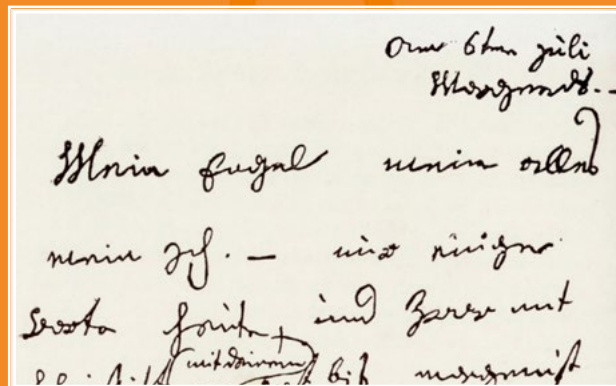 am 6ten juli
Morgends. –
Mein Engel mein alles
mein Ich. – nur einige
Worte heute, und zwar mit
Bleistift (mit deinem) bis morgen ist